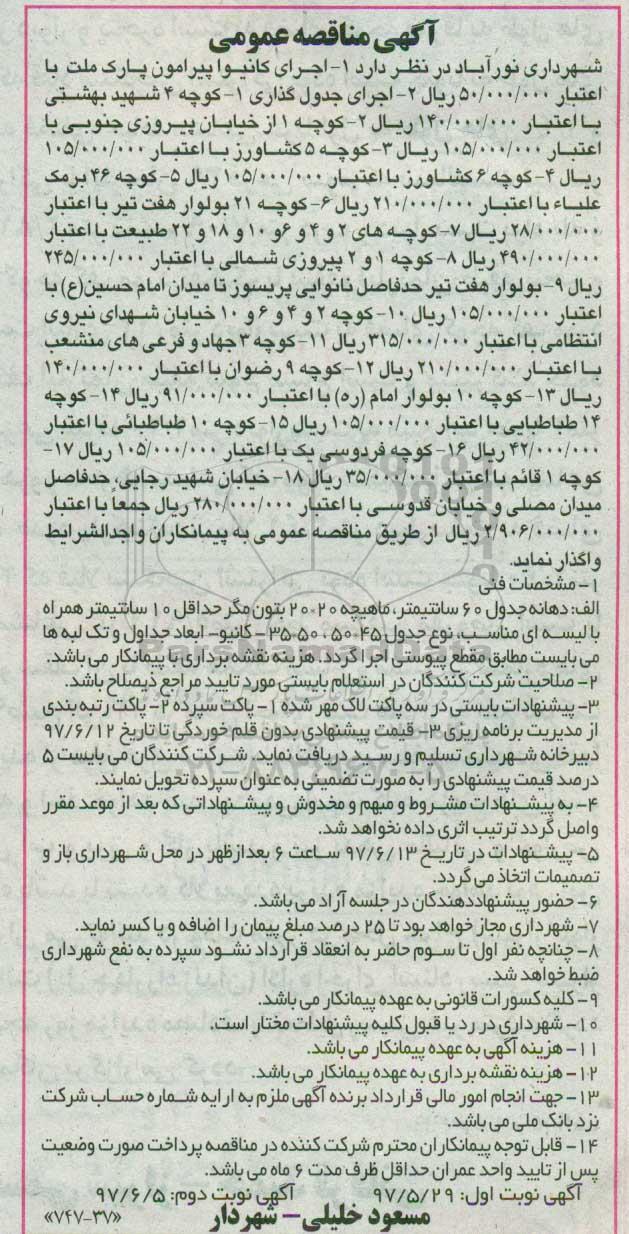 آگهی مناقصه عمومی
شهرداری نورآباد در نظر دارد ۱- اجرای کانیوا پیرامون پارک ملت با
اعتبار ۵۰/۰۰۰/۰۰۰ ریال ۲- اجرای جدول گذاری ۱- کوچه ۴ شهید بهشتی
با اعتبار ۱۴۰/۰۰۰/۰۰۰ ریال ۲- کوچه ۱ از خیابان پیروزی جنوبی با
اعتبار ۱۰۵/۰۰۰/۰۰۰ ریال ۳- کوچه ۵ کشاورز با اعتبار ۱۰۵/۰۰۰/۰۰۰
ریال ۴- کوچه ۶ کشاورز با اعتبار ۱۰۵/۰۰۰/۰۰۰ ریال ۵- کوچه ۴۶ برمک
علیاء با اعتبار ۲۱۰/۰۰۰/۰۰۰ ریال ۶- کوچه ۲۱ بولوار هفت تیر با اعتبار
۲۸/۰۰۰/۰۰۰ ریال ۷- کوچه های ۲ و ۴ و ۶و ۱۰ و ۱۸ و ۲۲ طبیعت با اعتبار
۴۹۰/۰۰۰/۰۰۰ ریال ۸- کوچه ۱ و ۲ پیروزی شمالی با اعتبار ۲۴۵/۰۰۰/۰۰۰
ریال ۹- بولوار هفت تیر حدفاصل نانوایی پریسوز تا میدان امام حسین(ع) با
اعتبار ۱۰۵/۰۰۰/۰۰۰ ریال ۱۰- کوچه ۲ و ۴ و ۶ و ۱۰ خیابان شهدای نیروی
انتظامی با اعتبار ۳۱۵/۰۰۰/۰۰۰ ریال ۱۱- کوچه ۳ جهاد و فرعی های منشعب
با اعتبار ۲۱۰/۰۰۰/۰۰۰ ریال ۱۲- کوچه ۹ رضوان با اعتبار ۱۴۰/۰۰۰/۰۰۰
ریال ۱۳- کوچه ۱۰ بولوار امام (ره) با اعتبار ۹۱/۰۰۰/۰۰۰ ریال ۱۴- کوچه
۱۴ طباطبایی با اعتبار ۱۰۵/۰۰۰/۰۰۰ ریال ۱۵- کوچه ۱۰ طباطبائی با اعتبار
۴۲/۰۰۰/۰۰۰ ریال ۱۶- کوچه فردوسی یک با اعتبار ۱۰۵/۰۰۰/۰۰۰ ریال ۱۷-
کوچه ۱ قائم با اعتبار ۳۵/۰۰۰/۰۰۰ ریال ۱۸- خیابان شهید رجایی، حدفاصل
میدان مصلی و خیابان قدوسی با اعتبار ۲۸۰/۰۰۰/۰۰۰ ریال جمعاً با اعتبار
۲/۹۰۶/۰۰۰/۰۰۰ ریال از طریق مناقصه عمومی به پیمانکاران واجدالشرایط
واگذار نماید.
۱- مشخصات فنی
الف: دهانه جدول ۶۰ سانتیمتر، ماهیچه ۲۰*۲۰ بتون مگر حداقل ۱۰ سانتیمتر همراه
با لیسه ای مناسب، نوع جدول ۴۵*۵۰ ، ۵۰*۳۵ - کانیو- ابعاد جداول و تک لبه ها
می بایست مطابق مقطع پیوستی اجرا گردد. هزینه نقشه برداری با پیمانکار می باشد.
۲- صلاحیت شرکت کنندگان در استعلام بایستی مورد تایید مراجع ذیصلاح باشد.
۳- پیشنهادات بایستی در سه پاکت لاک مهر شده ۱- پاکت سپرده ۲- پاکت رتبه بندی
از مدیریت برنامه ریزی ۳- قیمت پیشنهادی بدون قلم خوردگی تا تاریخ ۹۷/۶/۱۲
دبیرخانه شهرداری تسلیم و رسید دریافت نماید. شرکت کنندگان می بایست ۵
درصد قیمت پیشنهادی را به صورت تضمینی به عنوان سپرده تحویل نمایند.
۴- به پیشنهادات مشروط و مبهم و مخدوش و پیشنهاداتی که بعد از موعد مقرر
واصل گردد ترتیب اثری داده نخواهد شد.
۵- پیشنهادات در تاریخ ۹۷/۶/۱۳ ساعت ۶ بعدازظهر در محل شهرداری باز و
تصمیمات اتخاذ می گردد.
۶- حضور پیشنهاددهندگان در جلسه آزاد می باشد.
۷- شهرداری مجاز خواهد بود تا ۲۵ درصد مبلغ پیمان را اضافه و یا کسر نماید.
۸- چنانچه نفر اول تا سوم حاضر به انعقاد قرارداد نشود سپرده به نفع شهرداری
ضبط خواهد شد.
۹- کلیه کسورات قانونی به عهده پیمانکار می باشد.
۱۰- شهرداری در رد یا قبول کلیه پیشنهادات مختار است.
۱۱- هزینه آگهی به عهده پیمانکار می باشد.
۱۲- هزینه نقشه برداری به عهده پیمانکار می باشد.
۱۳- جهت انجام امور مالی قرارداد برنده آگهی ملزم به ارایه شماره حساب شرکت
نزد بانک ملی می باشد.
۱۴- قابل توجه پیمانکاران محترم شرکت کننده در مناقصه پرداخت صورت وضعیت
پس از تایید واحد عمران حداقل ظرف مدت ۶ ماه می باشد.
آگهی نوبت اول: ۹۷/۵/۲۹ آگهی نوبت دوم: ۹۷/۶/۵
مسعود خلیلی- شهردار «۷۴۷-۳۷»